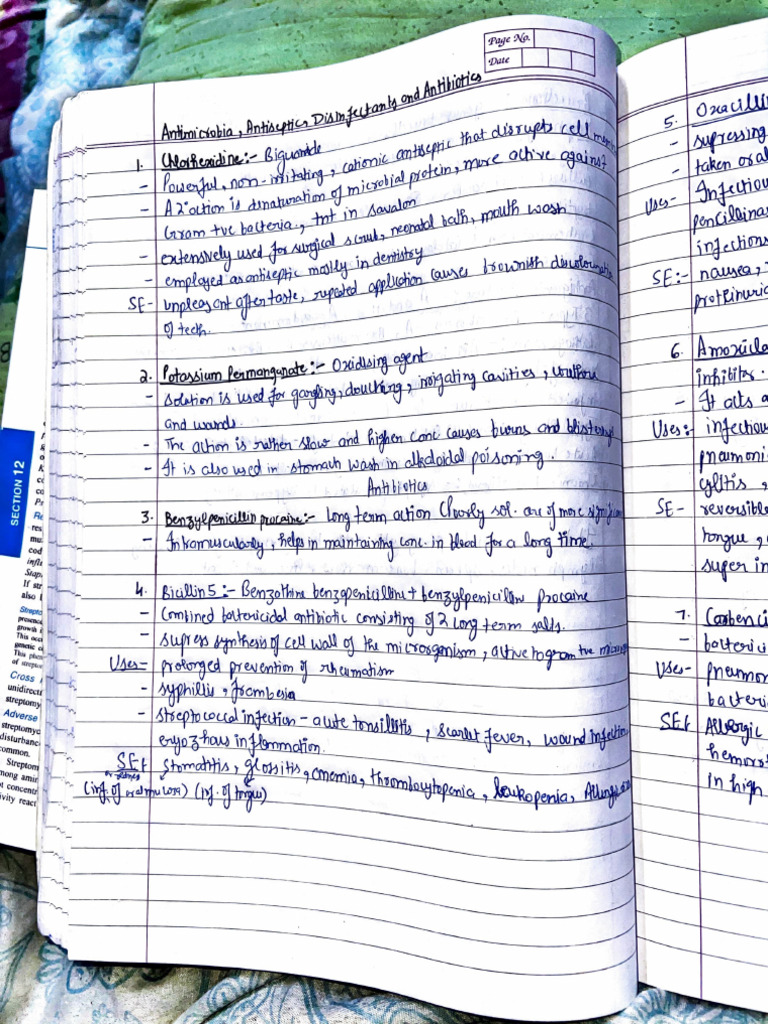 Page No.
Date
Antimicrobia, Antiseptics Disinfectants and Antibiotics
1. Chlorhexidine:- Biguanide
- Powerful, non-irritating, cationic antiseptic that disrupts cell
- A 2° action is denaturation of microbial protein, more active against
Gram +ve bacteria, tmt in savalon
- extensively used for surgical scrub, neonatal bath, mouth wash
- employed as antiseptic mostly in dentistry
SE- unpleasent after taste, repeated application causes brownish discolouration
of teeth.
2. Potassium Permanganate:- Oxidising agent
- Solution is used for gargling, douching, irrigating cavities, urethra
and wounds.
- The action is rather slow and higher conc causes burns and blistering
- It is also used in stomach wash in alkaloidal poisoning.
Antibiotics
3. Benzylpenicillin procaine:- Long term action (Poorly sol. are of more
- Intramuscularly, helps in maintaining conc. in blood for a long time.
4. Bicillin 5:- Benzathine benzapenicilline + benzylpenicillin procaine
- Combined bactericidal antibiotic consisting of 2 long term salts.
- supress synthesis of cell wall of the microrgonism, active to gram +ve
Uses= prolonged prevention of rheumatism
- syphillis, frambesia
- streptococcal infection - acute tonsillitis, scarlet fever, wound infection
inflammation.
SEf stomatitis, glossitis, anemia, thrombocytopenia, leukopenia,
(inf. of oral mucosa) (inf. of tongue)
5. Oxacillin
- supressing
- taken oral
Uses- Infectiou
pencillina
infections
SE:- nausea,
proteinuri
6. Amoxicla
inhibitor.
- It acts a
Uses:- infectiou
pneumoni
SE- reversible
tongue,
super in
7. Carbenci
- bacterici
Uses- pneumon
bacteri
SEf Allergic
hemorr
in high
SECTION 12
If str
also
Strepto
presence
growth
This occ
genetic
This phen
of strepto
Cross
unidirecti
streptomy
Adverse
streptomyc
disturbanc
common.
Streptom
mong amin
t concentr
ivity react